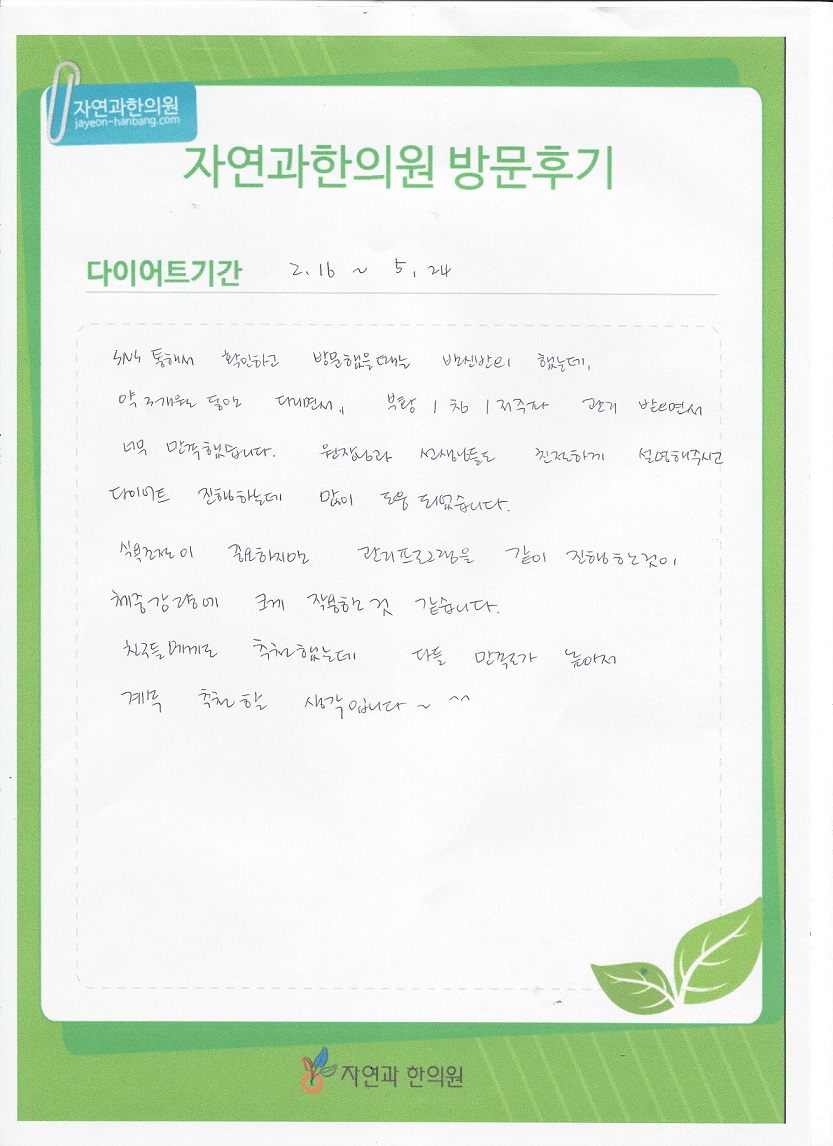 자연과한의원
jayeon-hanbang.com
자연과한의원 방문후기
다이어트기간 2.16 ~ 5.24
SNS 통해서 확인하고 방문했을때는 반신반의 했는데,
약 3개월 동안 다니면서, 관리 받으면서
너무 만족했습니다. 원장님과 선생님들도 친절하게 설명해주시고
다이어트 진행하는데 많이 도움 되었습니다.
식욕조절이 중요하지만 관리프로그램을 같이 진행하는것이
체중감량에 크게 작용하는것 같습니다.
친구들에게도 추천했는데 다들 만족도가 높아서
계속 추천할 생각입니다~ ^^
자연과 한의원